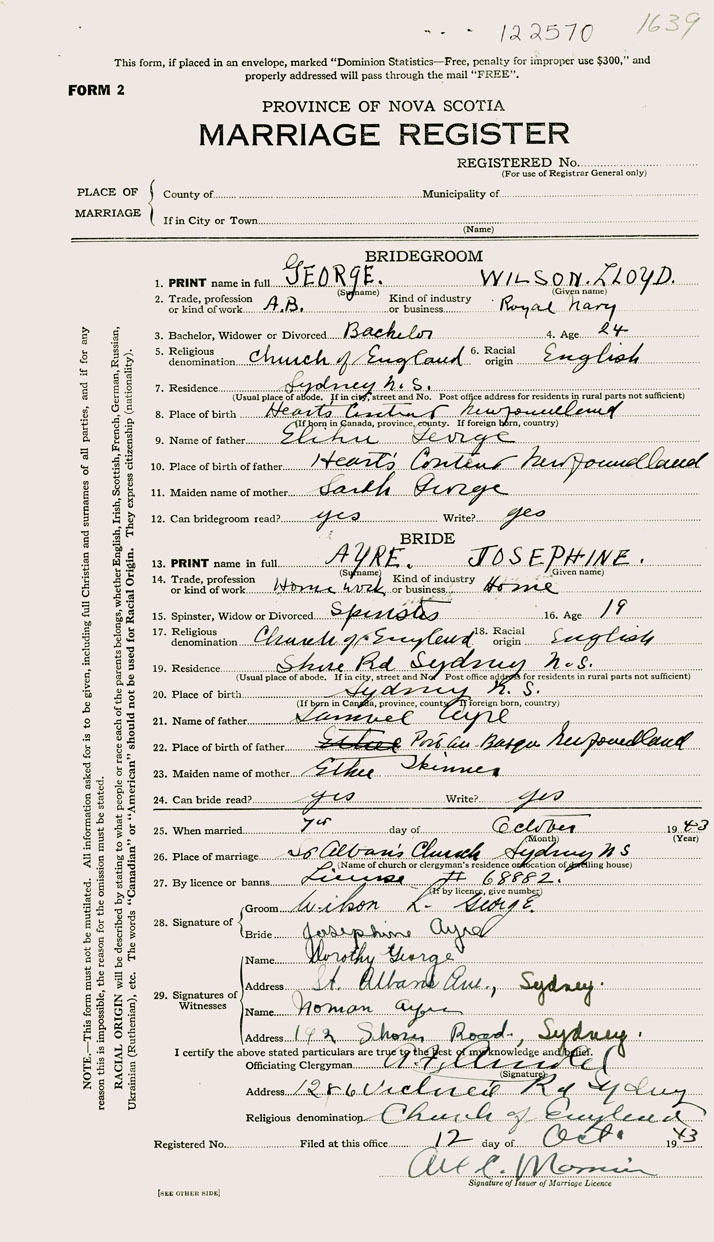 122570 1639
This form, if placed in an envelope, marked “Dominion Statistics—Free, penalty for improper use $300,” and
properly addressed will pass through the mail “FREE”.
FORM 2
PROVINCE OF NOVA SCOTIA
MARRIAGE REGISTER
REGISTERED No.
(For use of Registrar General only)
PLACE OF MARRIAGE
County of Municipality of
If in City or Town
(Name)
BRIDEGROOM
1. PRINT name in full GEORGE. WILSON. LLOYD.
(Surname) (Given name)
2. Trade, profession or kind of work A.B. Kind of industry or business Royal Navy
3. Bachelor, Widower or Divorced Bachelor 4. Age 24
5. Religious denomination Church of England 6. Racial origin English
7. Residence Sydney N.S.
(Usual place of abode. If in city, street and No. Post office address for residents in rural parts not sufficient)
8. Place of birth Hearts Content Newfoundland
(If born in Canada, province, county. If foreign born, country)
9. Name of father Elihu George
10. Place of birth of father Heart's Content Newfoundland
11. Maiden name of mother Sarah George
12. Can bridegroom read? yes Write? yes
BRIDE
13. PRINT name in full AYRE. JOSEPHINE.
(Surname) (Given name)
14. Trade, profession or kind of work Home work Kind of industry or business Home
15. Spinster, Widow or Divorced Spinster 16. Age 19
17. Religious denomination Church of England 18. Racial origin English
19. Residence Shore Rd Sydney N.S.
(Usual place of abode. If in city, street and No. Post office address for residents in rural parts not sufficient)
20. Place of birth Sydney N.S.
(If born in Canada, province, county. If foreign born, country)
21. Name of father Samuel Ayre
22. Place of birth of father Port au Basque Newfoundland
23. Maiden name of mother Ethel Skinner
24. Can bride read? yes Write? yes
25. When married 7th day of October 1943
(Month) (Year)
26. Place of marriage St Alban's Church Sydney NS
(Name of church or clergyman's residence or location of dwelling house)
27. By licence or banns License # 68882.
(If by licence, give number)
28. Signature of
Groom Wilson L. George.
Bride Josephine Ayre
29. Signatures of Witnesses
Name Dorothy George
Address St. Albans Ave., Sydney.
Name Noman Ayre
Address 192 Shore Road, Sydney.
I certify the above stated particulars are true to the best of my knowledge and belief.
Officiating Clergyman A. F. Arnold
(Signature)
Address 1286 Victoria Rd Sydney
Religious denomination Church of England
Registered No. Filed at this office 12 day of Oct. 1943
Alex C.
Signature of Issuer of Marriage Licence
[SEE OTHER SIDE]
NOTE.—This form must not be mutilated. All information asked for is to be given, including full Christian and surnames of all parties, and if for any
reason this is impossible, the reason for the omission must be stated.
RACIAL ORIGIN will be described by stating to what people or race each of the parents belongs, whether English, Irish, Scottish, French, German, Russian,
Ukrainian (Ruthenian), etc. The words “Canadian” or “American” should not be used for Racial Origin. They express citizenship (nationality).